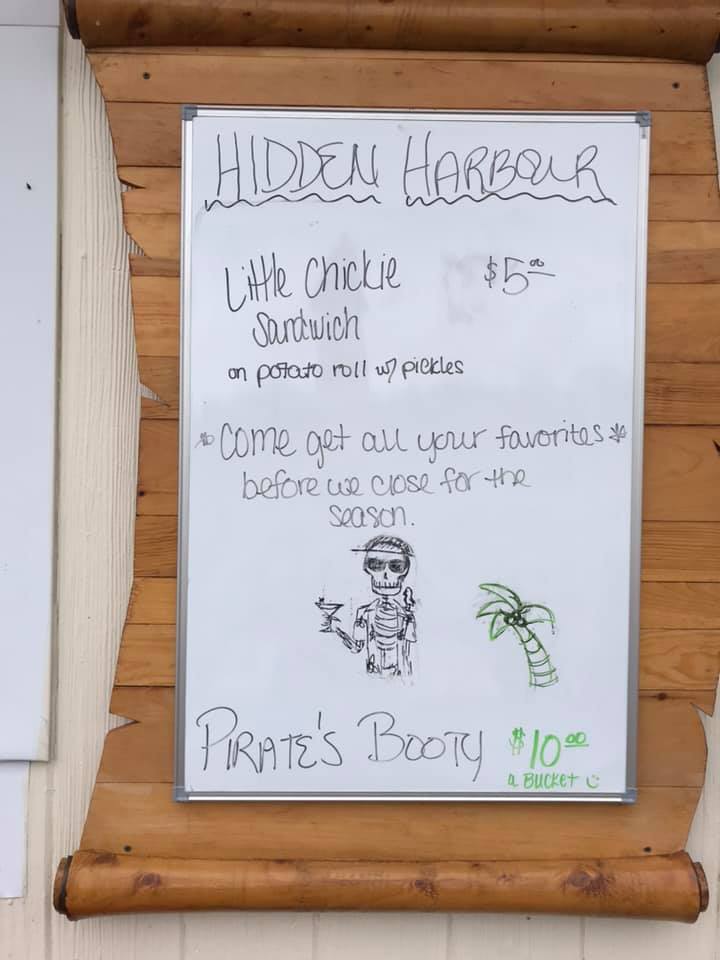 HIDDEN HARBOUR
Little Chickie $5.00
Sandwich
on potato roll w/ pickles
*Come get all your favorites*
before we close for the
season.
PIRATE'S BOOTY $10.00
a BUCKET :)